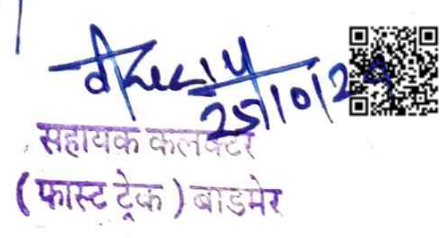 25/10/24
सहायक कलक्टर
(फास्ट ट्रेक) बाडमेर